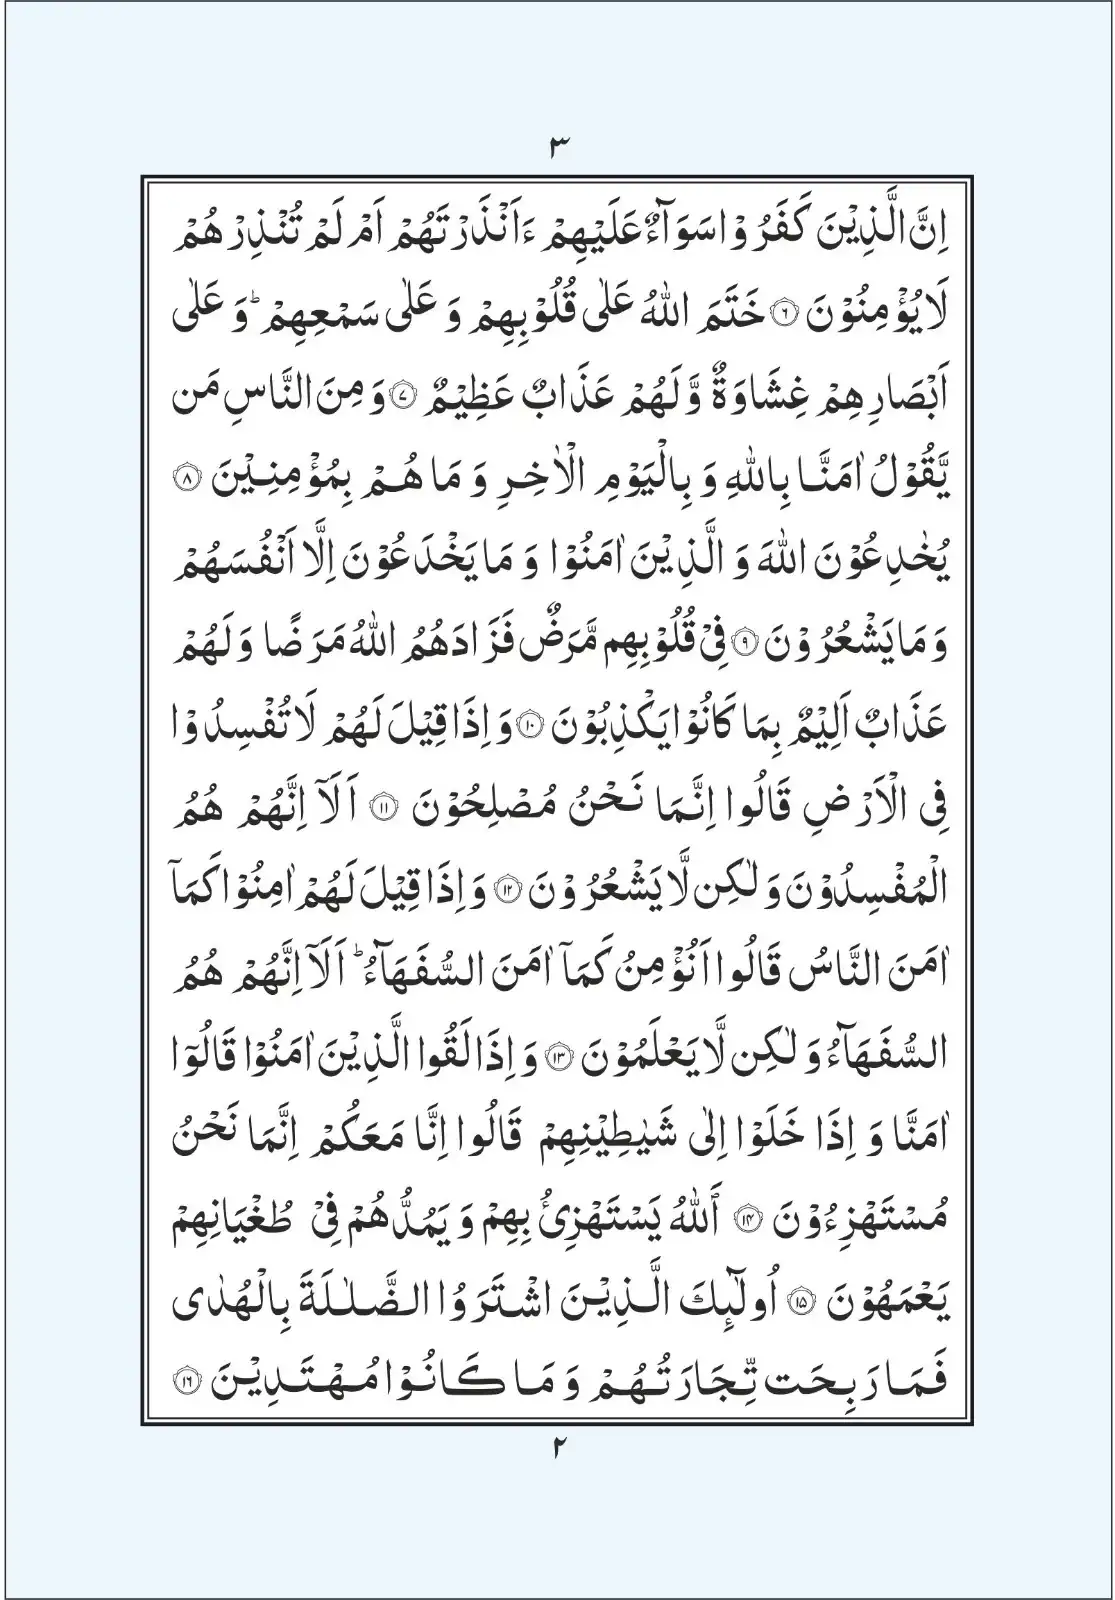 ۳
اِنَّ الَّذِيْنَ كَفَرُوْا سَوَآءٌ عَلَيْهِمْ ءَاَنْذَرْتَهُمْ اَمْ لَمْ تُنْذِرْهُمْ
لَا يُؤْمِنُوْنَ ۶ خَتَمَ اللّٰهُ عَلٰى قُلُوْبِهِمْ وَ عَلٰى سَمْعِهِمْ ؕ وَ عَلٰى
اَبْصَارِهِمْ غِشَاوَةٌ وَّ لَهُمْ عَذَابٌ عَظِيْمٌ ۷ وَ مِنَ النَّاسِ مَن
يَّقُوْلُ اٰمَنَّا بِاللّٰهِ وَ بِالْيَوْمِ الْاٰخِرِ وَ مَا هُمْ بِمُؤْمِنِيْنَ ۸
يُخٰدِعُوْنَ اللّٰهَ وَ الَّذِيْنَ اٰمَنُوْا وَ مَا يَخْدَعُوْنَ اِلَّا اَنْفُسَهُمْ
وَ مَا يَشْعُرُوْنَ ۹ فِىْ قُلُوْبِهِم مَّرَضٌ فَزَادَهُمُ اللّٰهُ مَرَضًا وَ لَهُمْ
عَذَابٌ اَلِيْمٌ بِمَا كَانُوْا يَكْذِبُوْنَ ۱۰ وَ اِذَا قِيْلَ لَهُمْ لَا تُفْسِدُوْا
فِى الْاَرْضِ قَالُوا اِنَّمَا نَحْنُ مُصْلِحُوْنَ ۱۱ اَلَآ اِنَّهُمْ هُمُ
الْمُفْسِدُوْنَ وَ لٰكِن لَّا يَشْعُرُوْنَ ۱۲ وَ اِذَا قِيْلَ لَهُمْ اٰمِنُوْا كَمَآ
اٰمَنَ النَّاسُ قَالُوا اَنُؤْمِنُ كَمَآ اٰمَنَ السُّفَهَآءُ ؕ اَلَآ اِنَّهُمْ هُمُ
السُّفَهَآءُ وَ لٰكِن لَّا يَعْلَمُوْنَ ۱۳ وَ اِذَا لَقُوا الَّذِيْنَ اٰمَنُوْا قَالُوْٓا
اٰمَنَّا وَ اِذَا خَلَوْا اِلٰى شَيٰطِيْنِهِمْ قَالُوا اِنَّا مَعَكُمْ اِنَّمَا نَحْنُ
مُسْتَهْزِءُوْنَ ۱۴ اَللّٰهُ يَسْتَهْزِئُ بِهِمْ وَ يَمُدُّهُمْ فِىْ طُغْيَانِهِمْ
يَعْمَهُوْنَ ۱۵ اُولٰٓئِكَ الَّذِيْنَ اشْتَرَوُا الضَّلٰلَةَ بِالْهُدٰى
فَمَا رَبِحَت تِّجَارَتُهُمْ وَ مَا كَانُوْا مُهْتَدِيْنَ ۱۶
۲